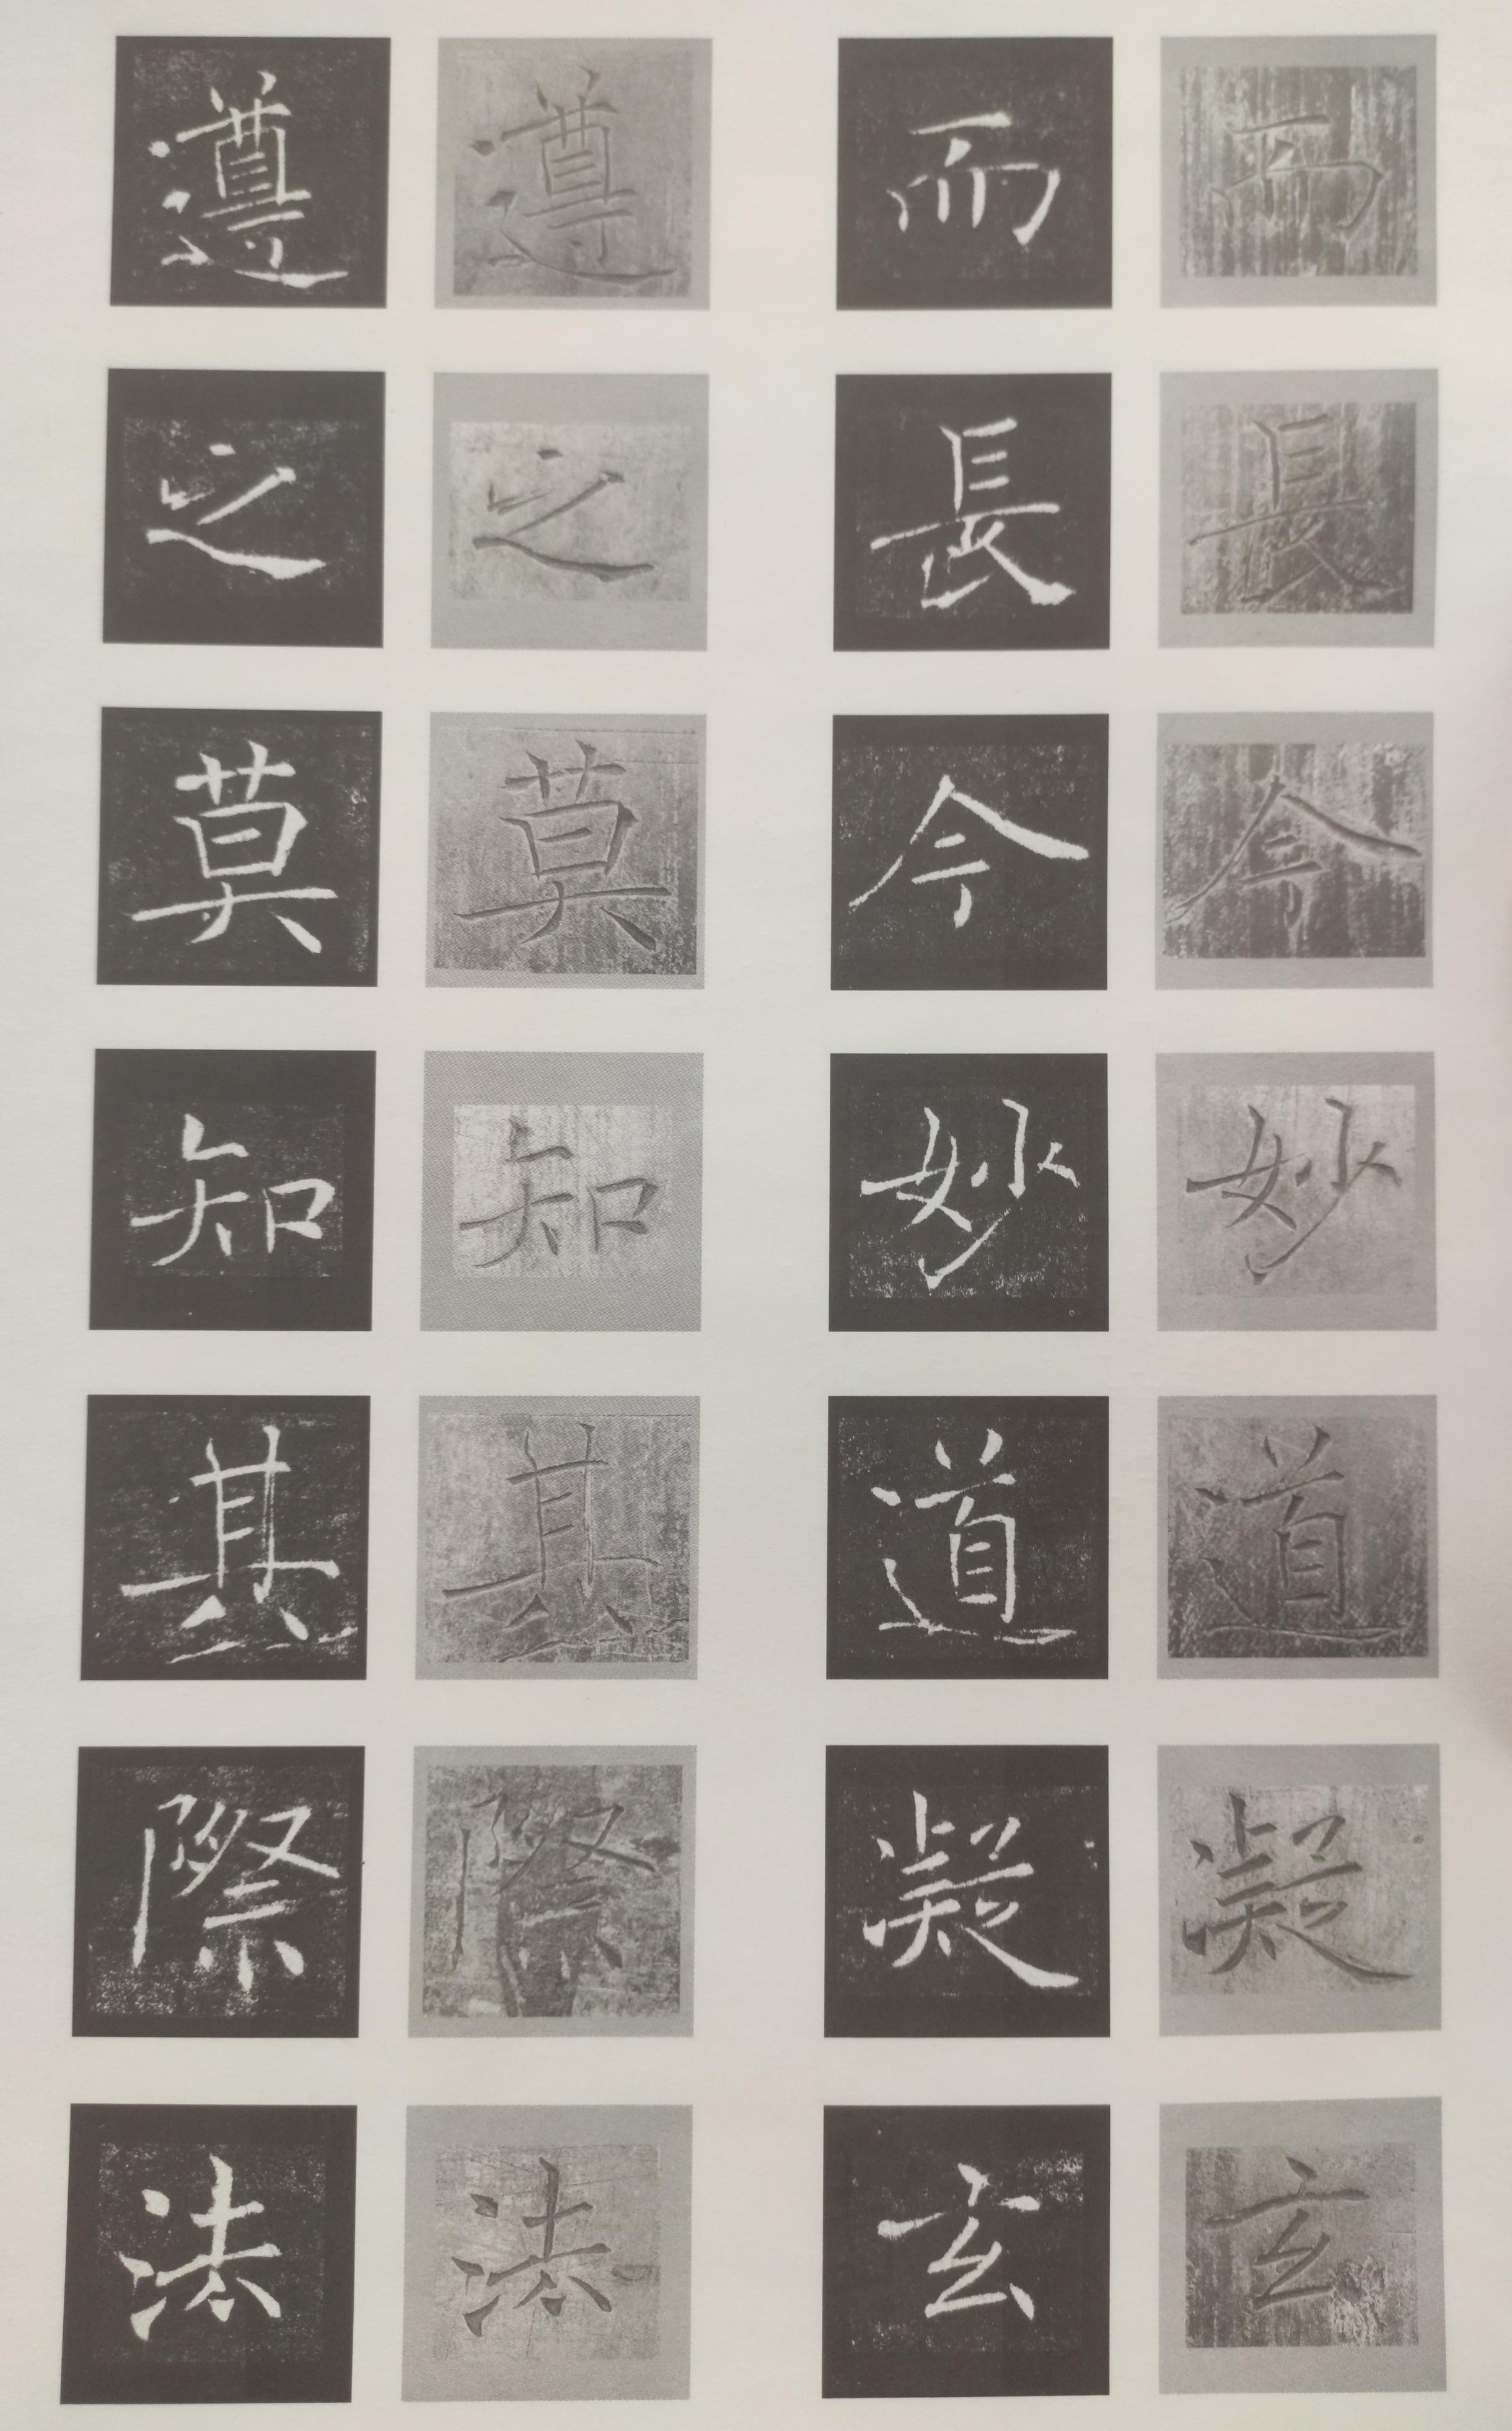 而長今妙道凝玄
而長今妙道凝玄
遵之莫知其際法
遵之莫知其際法